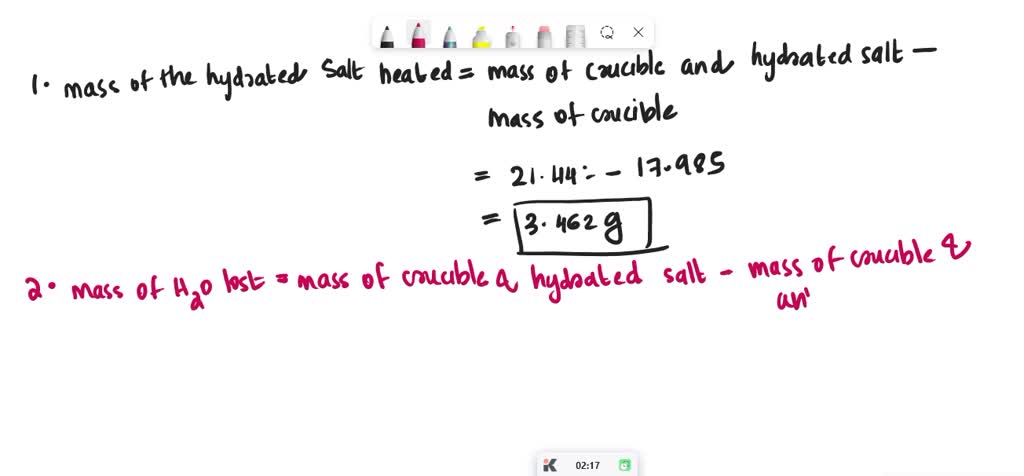 1. mass of the hydrated salt heated = mass of crucible and hydrated salt –
mass of crucible
= 21.44 – 17.985
= 3.462 g
2. mass of H₂O lost = mass of crucible & hydrated salt – mass of crucible &
an
K 02:17